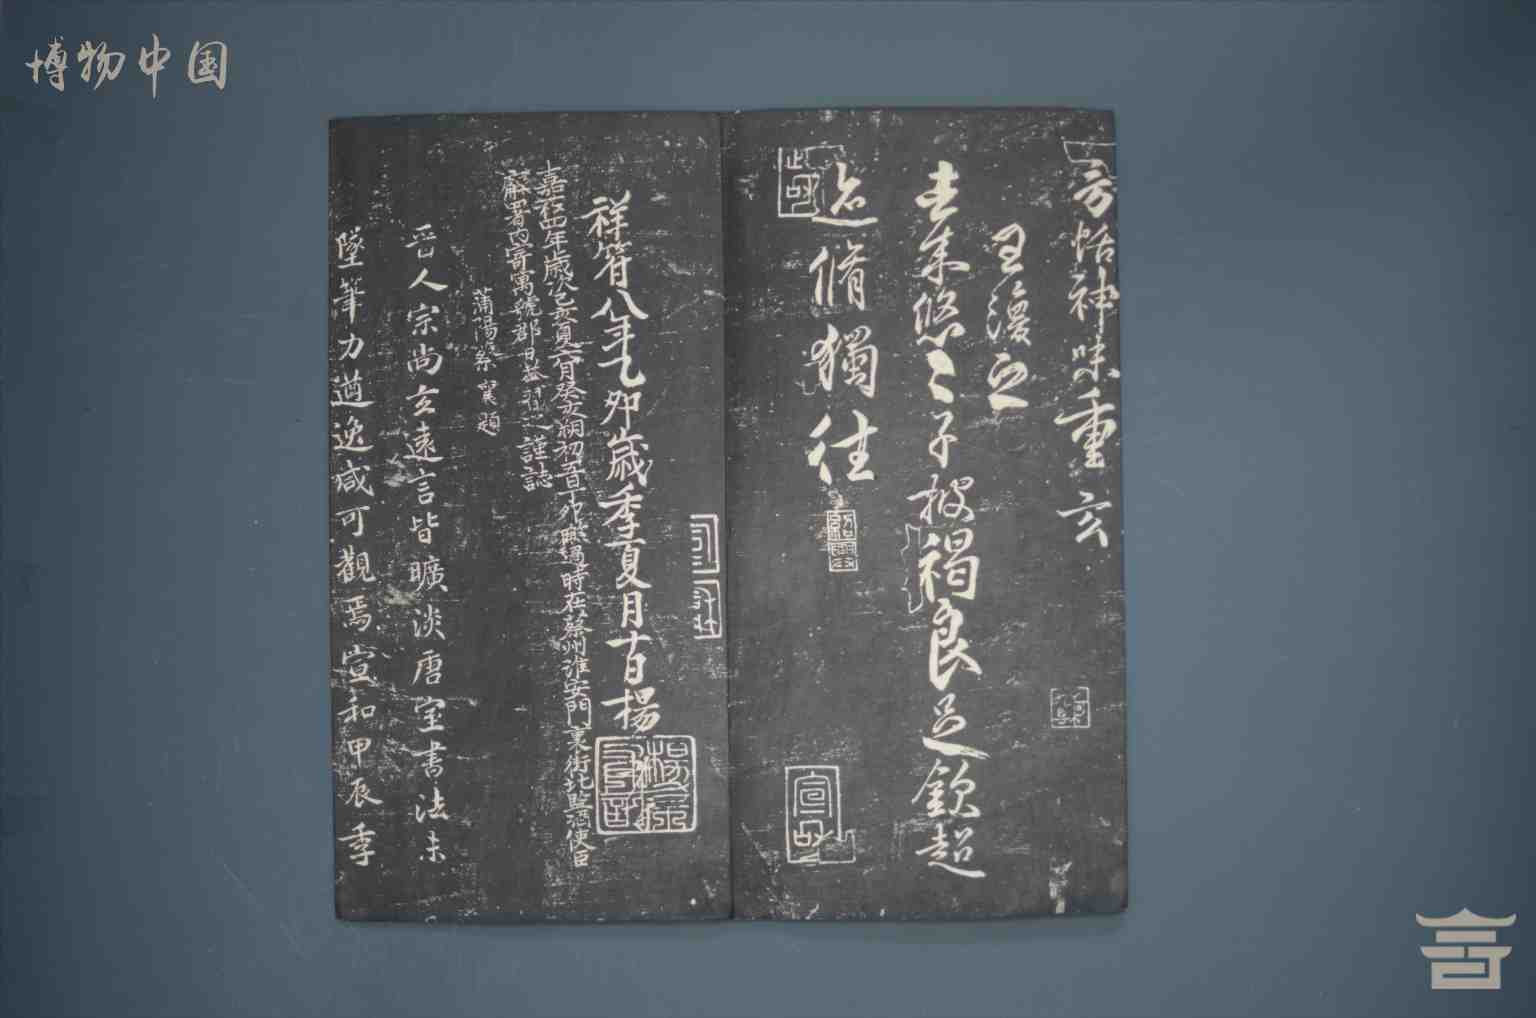 博物中国
方恬神味重玄
王渙之
去来悠悠子披褐良足欽超
迹脩獨往
祥符八年乙卯歲季夏月十日楊
嘉祐四年歲次己亥夏六月癸亥朔初五日丁卯 時在蔡州淮安門裏街北監酒使臣
廨署内寄寓號郡日益習之謹誌
蒲陽蔡襄題
晋人宗尚玄遠言皆曠淡唐室書法未
墜筆力遒逸咸可觀焉宣和甲辰季